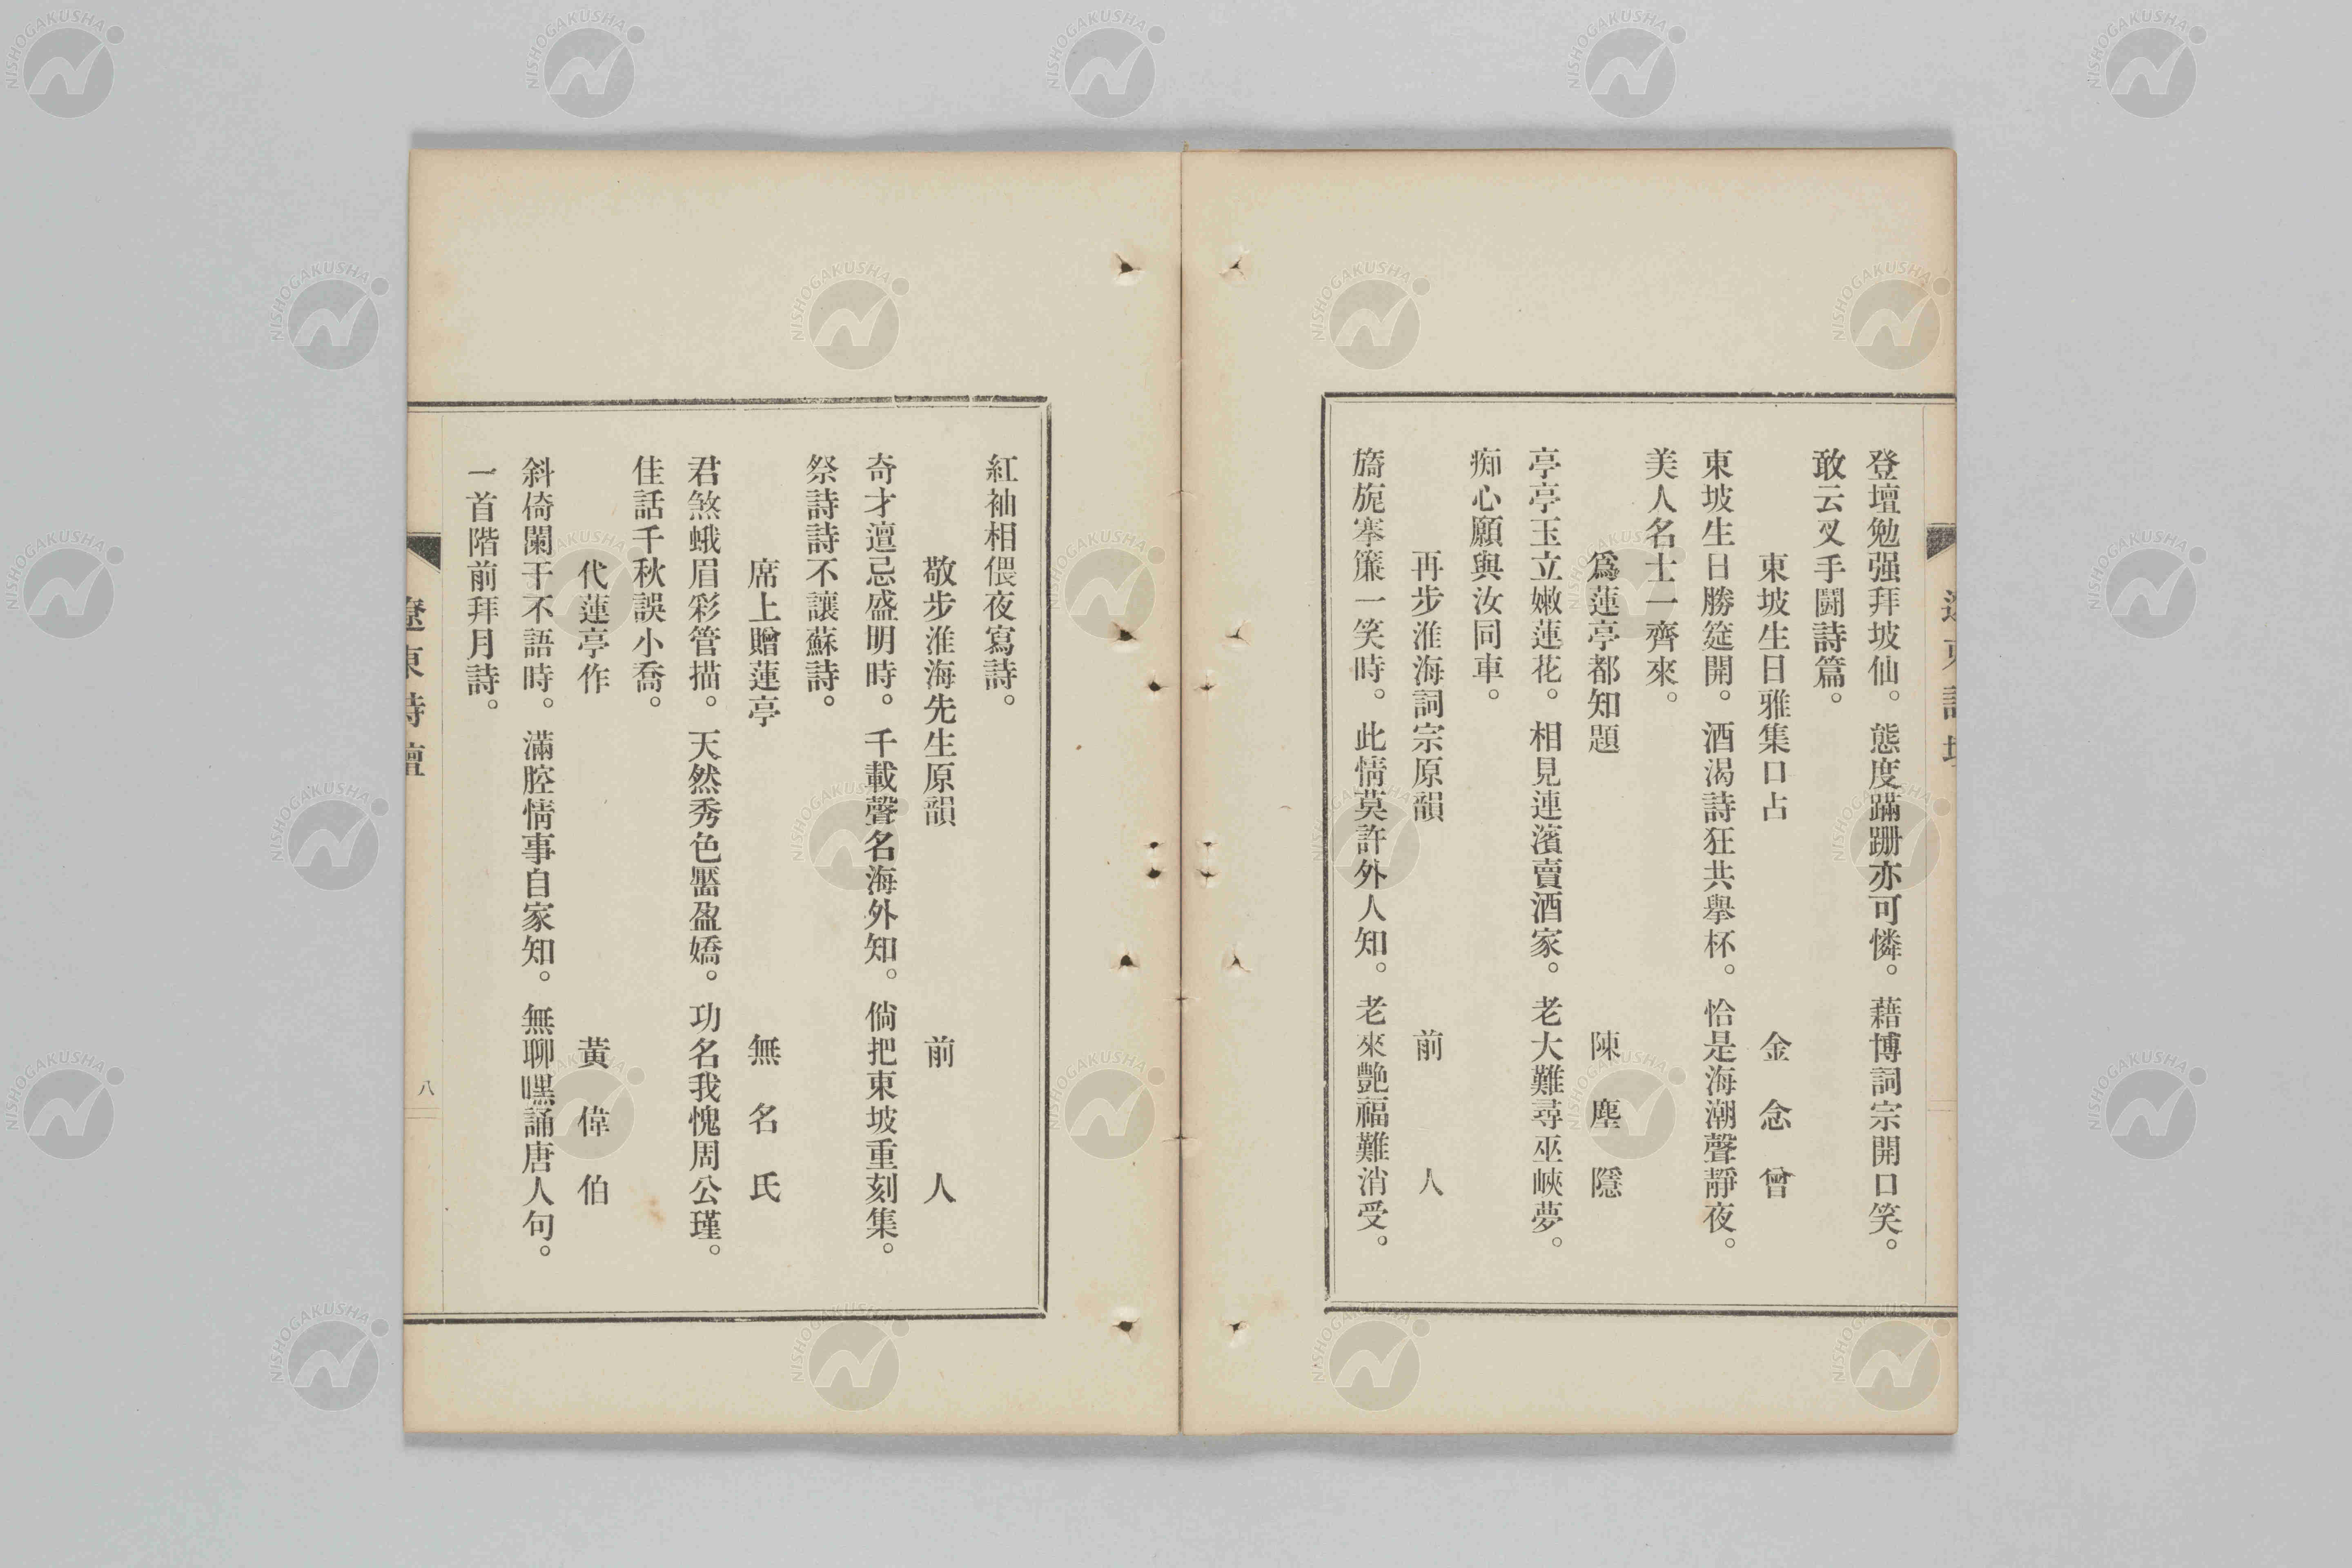 登壇勉强拜坡仙。態度蹣跚亦可憐。藉博詞宗開口笑。
敢云叉手鬪詩篇。
東坡生日雅集口占 金念曾
東坡生日勝筵開。酒渴詩狂共擧杯。恰是海潮聲靜夜。
美人名士一齊來。
爲蓮亭都知題 陳塵隱
亭亭玉立嫩蓮花。相見連濱賣酒家。老大難尋巫峽夢。
痴心願與汝同車。
再步淮海詞宗原韻 前人
旖旎搴簾一笑時。此情莫許外人知。老來艷福難消受。
紅袖相偎夜寫詩。
敬步淮海先生原韻 前人
奇才遭忌盛明時。千載聲名海外知。倘把東坡重刻集。
祭詩詩不讓蘇詩。
席上贈蓮亭 無名氏
君煞蛾眉彩管描。天然秀色黶盈嬌。功名我愧周公瑾。
佳話千秋誤小喬。
代蓮亭作 黃偉伯
斜倚闌干不語時。滿腔情事自家知。無聊嘿誦唐人句。
一首階前拜月詩。
遼東詩壇
八
NISHOGAKUSHA